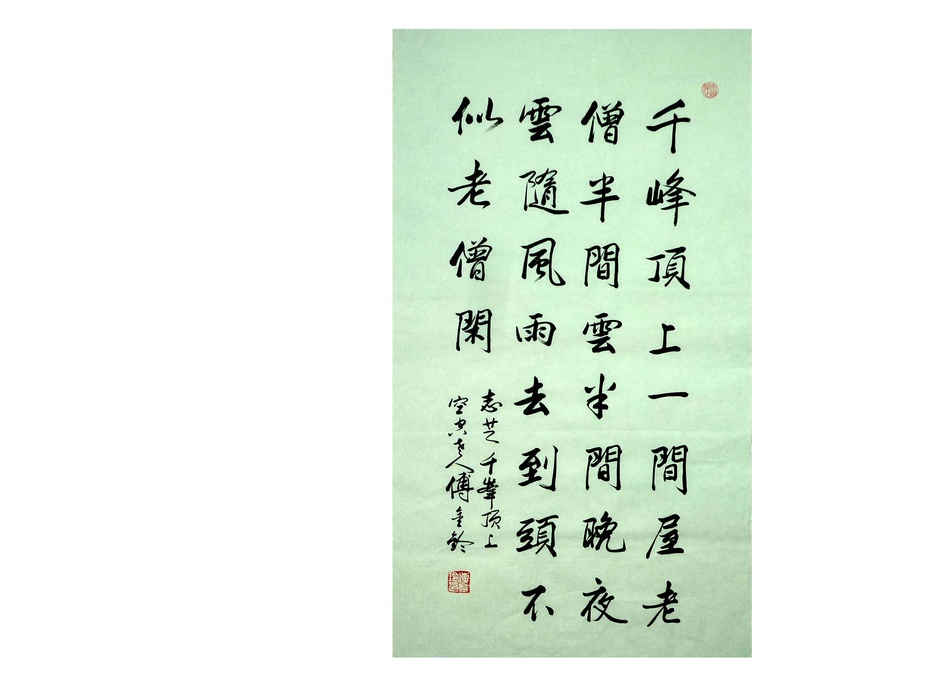 千峰頂上一間屋老
僧半間雲半間晚夜
雲隨風雨去到頭不
似老僧閑
志芝千峯頂上
空空老人傅金鈴